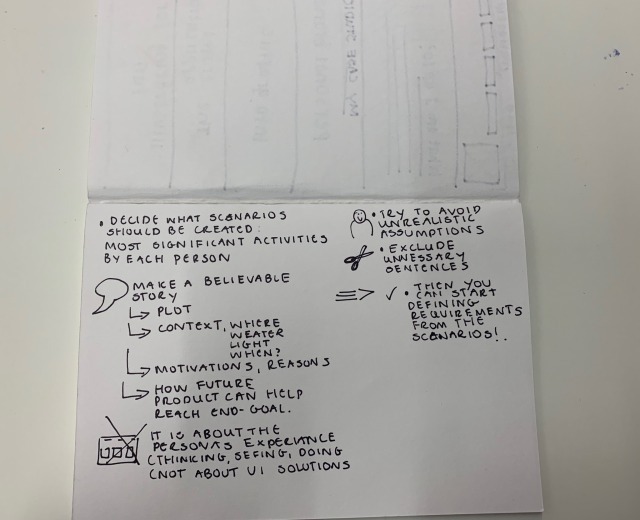 • DECIDE WHAT SCENARIOS
SHOULD BE CREATED:
MOST SIGNIFICANT ACTIVITIES
BY EACH PERSON
MAKE A BELIEVABLE
STORY
PLOT
CONTEXT, WHERE
WEATER
LIGHT
WHEN?
MOTIVATIONS, REASONS
HOW FUTURE
PRODUCT CAN HELP
REACH END-GOAL.
IT IS ABOUT THE
PERSONAS EXPERIANCE
(THINKING, SEEING, DOING
(NOT ABOUT UI SOLUTIONS
• TRY TO AVOID
UNREALISTIC
ASSUMPTIONS
• EXCLUDE
UNNESSARY
SENTENCES
• THEN YOU
CAN START
DEFINING
REQUIREMENTS
FROM THE
SCENARIOS!.